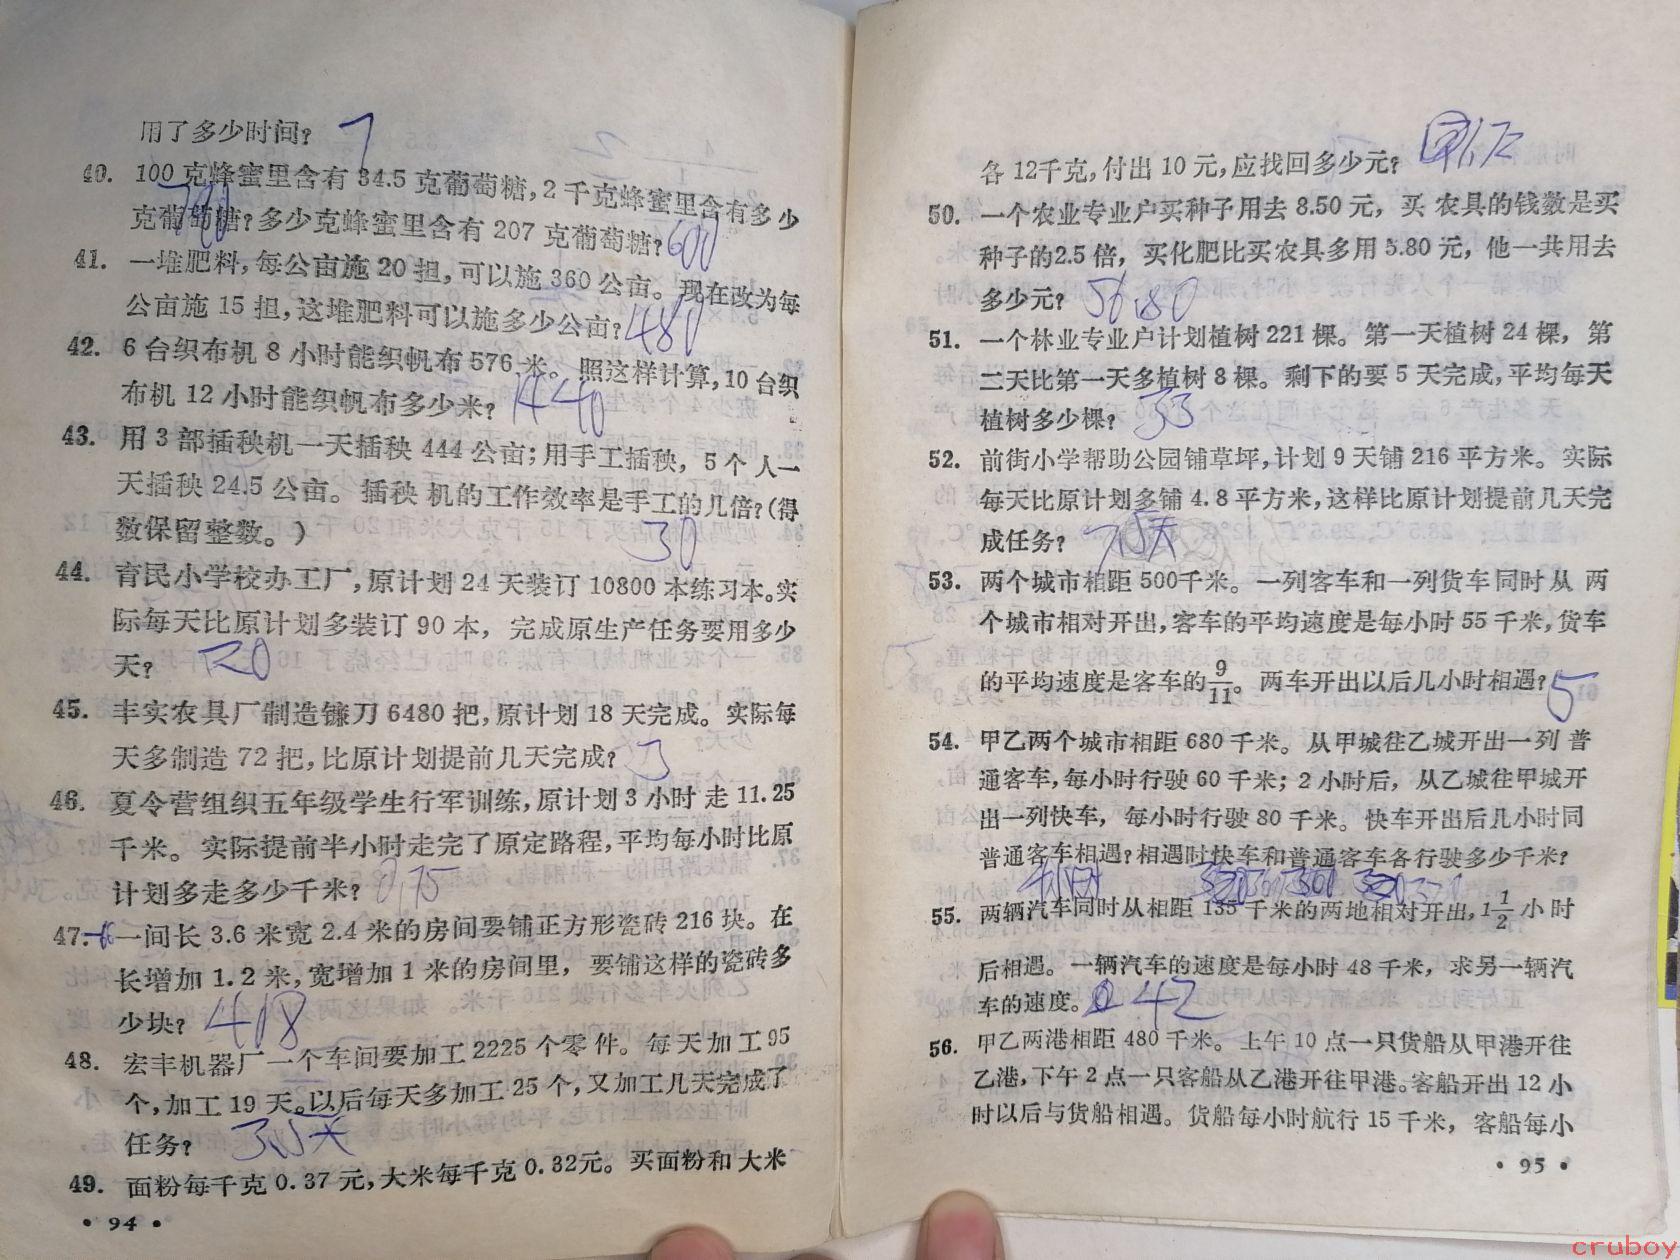 用了多少时间？ 7
40. 100克蜂蜜里含有34.5克葡萄糖，2千克蜂蜜里含有多少
克葡萄糖？多少克蜂蜜里含有207克葡萄糖？ 600
41. 一堆肥料，每公亩施20担，可以施360公亩。现在改为每
公亩施15担，这堆肥料可以施多少公亩？ 480
42. 6台织布机8小时能织帆布576米。照这样计算，10台织
布机12小时能织帆布多少米？ 1440
43. 用3部插秧机一天插秧444公亩；用手工插秧，5个人一
天插秧24.5公亩。插秧机的工作效率是手工的几倍？（得
数保留整数。） 30
44. 育民小学校办工厂，原计划24天装订10800本练习本。实
际每天比原计划多装订90本，完成原生产任务要用多少
天？ 20
45. 丰实农具厂制造镰刀6480把，原计划18天完成。实际每
天多制造72把，比原计划提前几天完成？ 3
46. 夏令营组织五年级学生行军训练，原计划3小时走11.25
千米。实际提前半小时走完了原定路程，平均每小时比原
计划多走多少千米？ 0.75
47. 一间长3.6米宽2.4米的房间要铺正方形瓷砖216块。在
长增加1.2米，宽增加1米的房间里，要铺这样的瓷砖多
少块？ 418
48. 宏丰机器厂一个车间要加工2225个零件。每天加工95
个，加工19天。以后每天多加工25个，又加工几天完成了
任务？ 3.5天
49. 面粉每千克0.37元，大米每千克0.32元。买面粉和大米
• 94 •
各12千克，付出10元，应找回多少元？
50. 一个农业专业户买种子用去8.50元，买农具的钱数是买
种子的2.5倍，买化肥比买农具多用5.80元，他一共用去
多少元？ 56.80
51. 一个林业专业户计划植树221棵。第一天植树24棵，第
二天比第一天多植树8棵。剩下的要5天完成，平均每天
植树多少棵？ 33
52. 前街小学帮助公园铺草坪，计划9天铺216平方米。实际
每天比原计划多铺4.8平方米，这样比原计划提前几天完
成任务？ 7.5天
53. 两个城市相距500千米。一列客车和一列货车同时从两
个城市相对开出，客车的平均速度是每小时55千米，货车
的平均速度是客车的9/11。两车开出以后几小时相遇？ 5
54. 甲乙两个城市相距680千米。从甲城往乙城开出一列普
通客车，每小时行驶60千米；2小时后，从乙城往甲城开
出一列快车，每小时行驶80千米。快车开出后几小时同
普通客车相遇？相遇时快车和普通客车各行驶多少千米？
55. 两辆汽车同时从相距135千米的两地相对开出，1 1/2小时
后相遇。一辆汽车的速度是每小时48千米，求另一辆汽
车的速度。 42
56. 甲乙两港相距480千米。上午10点一只货船从甲港开往
乙港，下午2点一只客船从乙港开往甲港。客船开出12小
时以后与货船相遇。货船每小时航行15千米，客船每小
• 95 •
cruboy